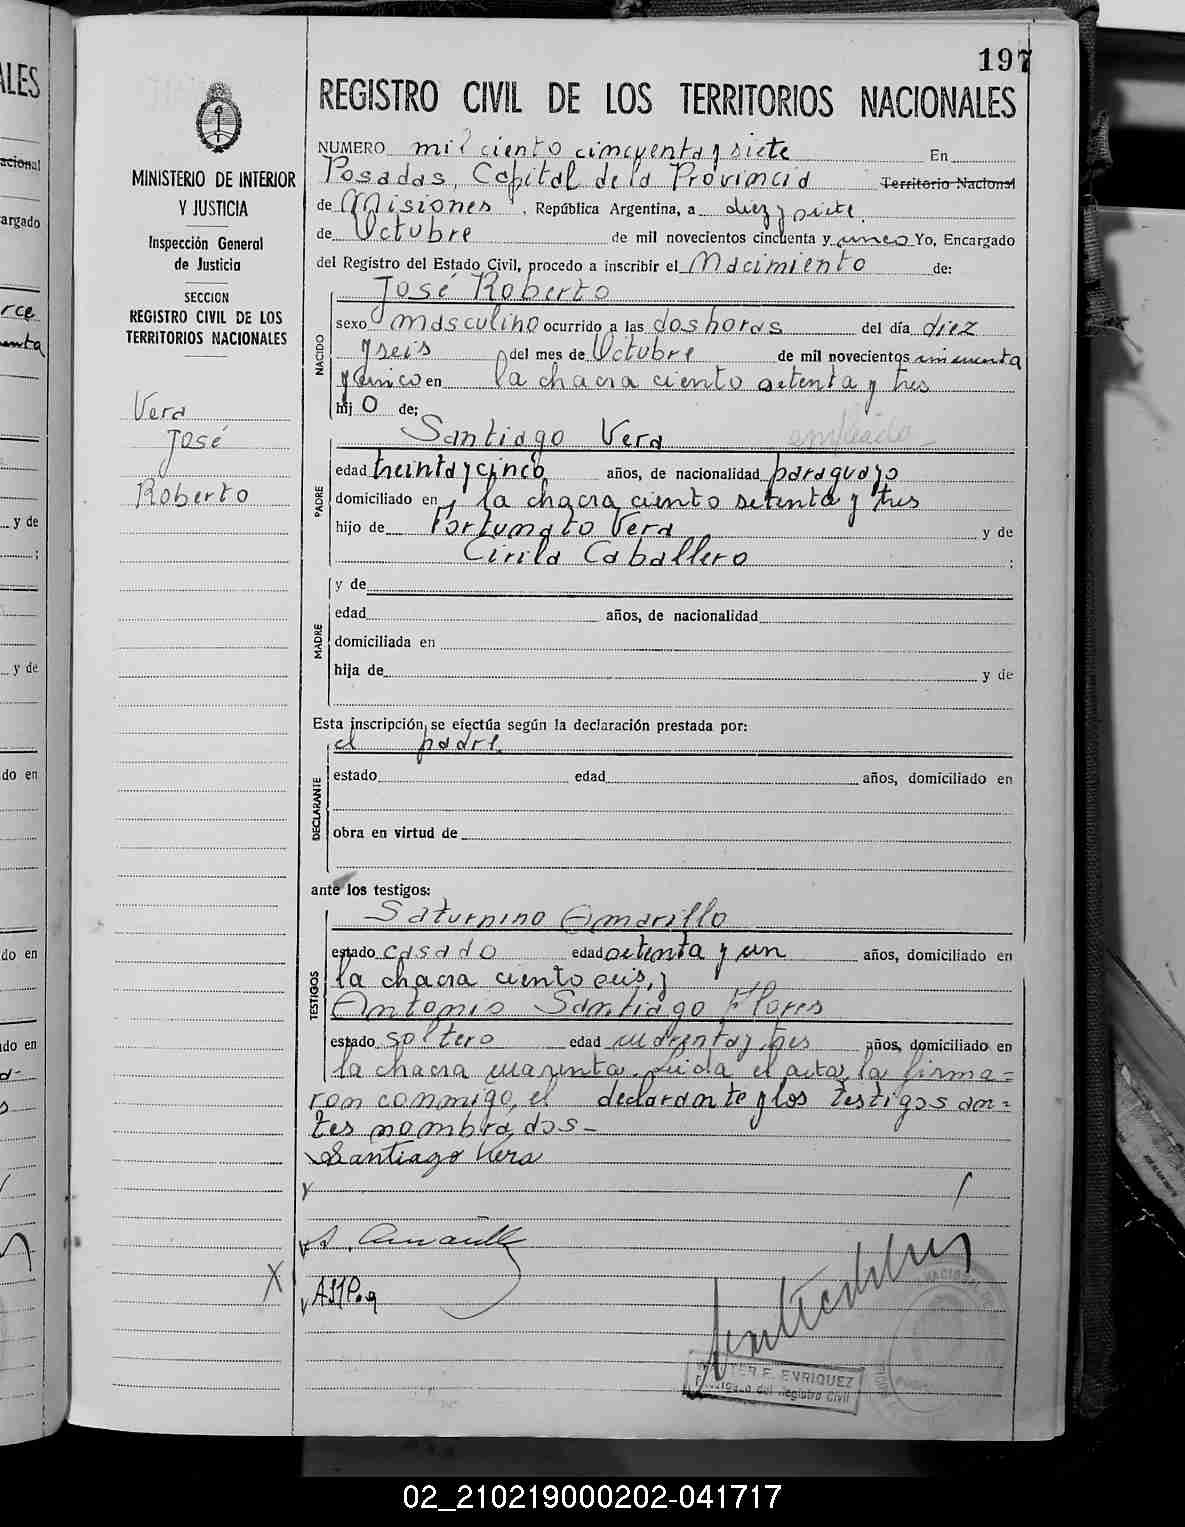 197
REGISTRO CIVIL DE LOS TERRITORIOS NACIONALES
MINISTERIO DE INTERIOR
Y JUSTICIA
Inspección General
de Justicia
SECCION
REGISTRO CIVIL DE LOS
TERRITORIOS NACIONALES
Vera
José
Roberto
NUMERO mil ciento cincuenta y siete En
Posadas, Capital de la Provincia Territorio Nacional
de Misiones, República Argentina, a diez y siete
de Octubre de mil novecientos cincuenta y cinco Yo, Encargado
del Registro del Estado Civil, procedo a inscribir el Nacimiento de:
José Roberto
NACIDO
sexo masculino ocurrido a las dos horas del día diez
y seis del mes de Octubre de mil novecientos cincuenta
y cinco en la chacra ciento setenta y tres
hij o de:
Santiago Vera empleado
PADRE
edad treinta y cinco años, de nacionalidad paraguayo
domiciliado en la chacra ciento setenta y tres
hijo de Fortunato Vera y de
Cirila Caballero ;
MADRE
y de
edad años, de nacionalidad
domiciliada en
hija de y de
Esta inscripción se efectúa según la declaración prestada por:
el padre
DECLARANTE
estado edad años, domiciliado en
obra en virtud de
ante los testigos:
Saturnino Amarillo
TESTIGOS
estado casado edad setenta y un años, domiciliado en
la chacra ciento seis, y
Antonio Santiago Flores
estado soltero edad cuarenta y tres años, domiciliado en
la chacra cuarenta. Leida el acta, la firma=
ron conmigo, el declarante y los testigos an=
tes nombrados-
Santiago Vera
S. Amarillo
ENRIQUEZ
Encargado del Registro Civil
ALES
acional
argado
rce
enta
y de
;
y de
do en
do en
do en
02_210219000202-041717